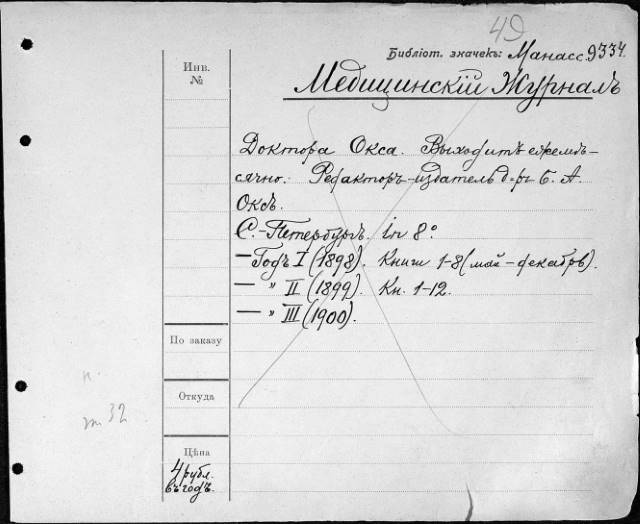 49
Библіот. значекъ: Манасс. 9334.
Инв.
№
Медицинскій Журналъ
Доктора Окса. Выходитъ ежемѣ-
сячно. Редакторъ-издатель д-ръ Б. А.
Оксъ.
С.-Петербургъ. in 8°
— Годъ I (1898). Книги 1-8 (май - декабрь).
— " II (1899). Кн. 1-12.
— " III (1900).
По заказу
Откуда
32
Цѣна
4 рубл.
въ годъ.